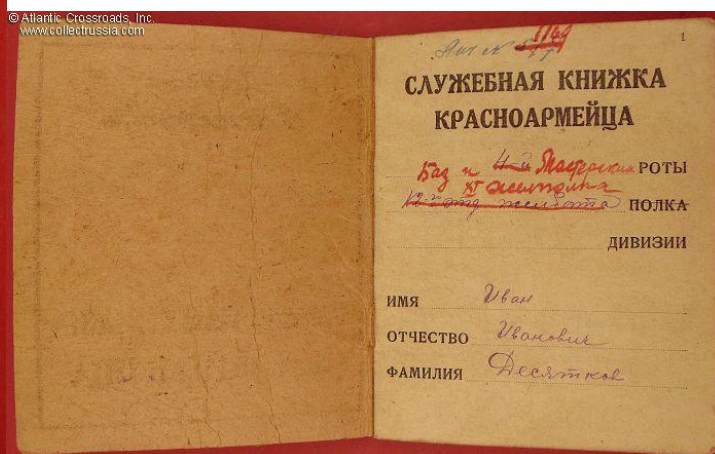 © Atlantic Crossroads, Inc.
www.collectrussia.com
1169
1
СЛУЖЕБНАЯ КНИЖКА
КРАСНОАРМЕЙЦА
Баз и Мастерских РОТЫ
XI желполка
ПОЛКА
ДИВИЗИИ
ИМЯ Иван
ОТЧЕСТВО Иванович
ФАМИЛИЯ Десятков